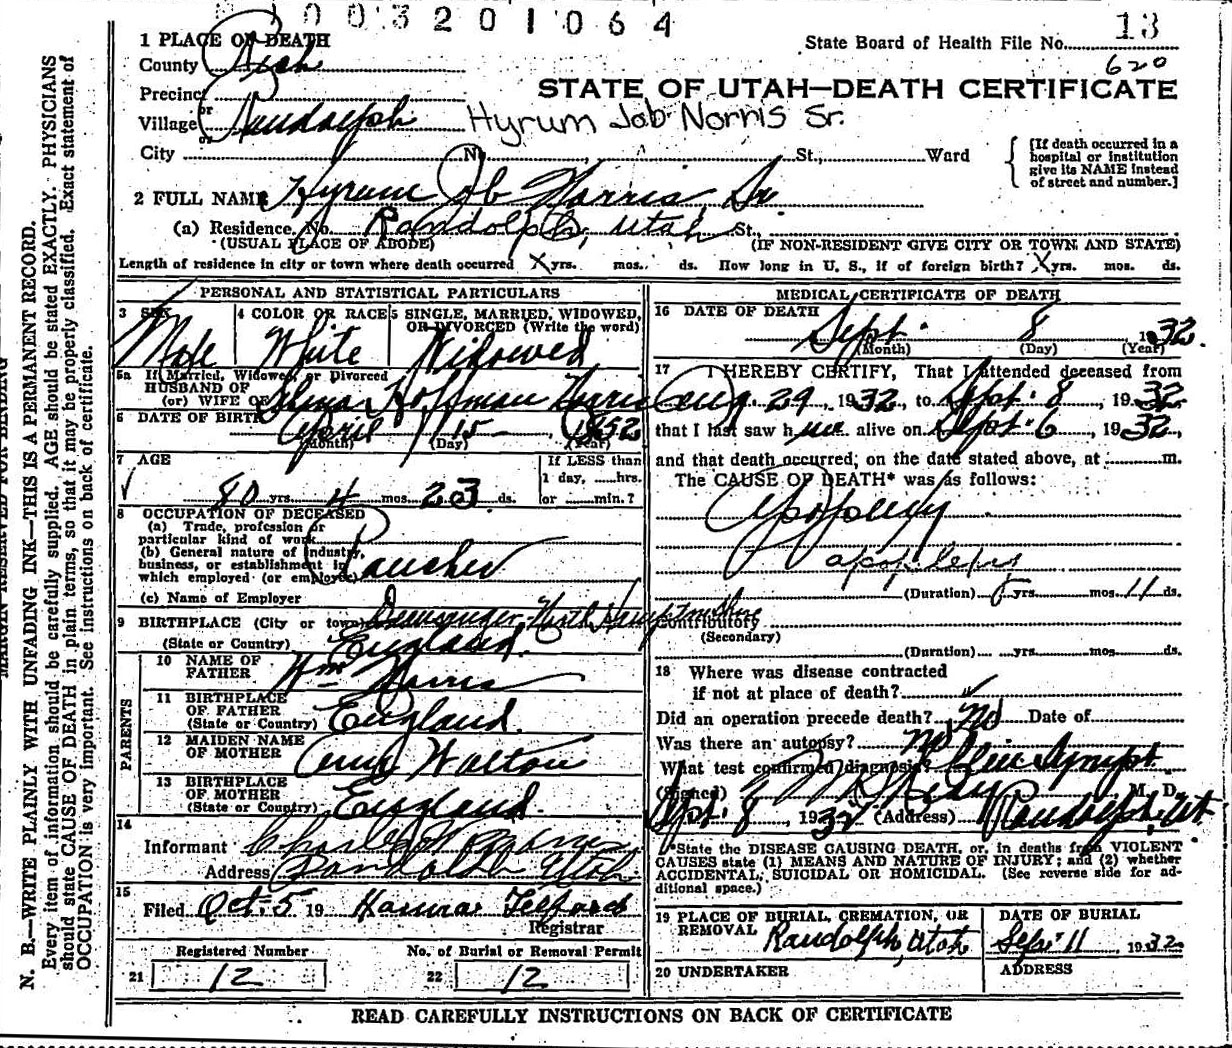 003201064
13
1 PLACE OF DEATH
State Board of Health File No.
County Rich
620
Precinct
STATE OF UTAH—DEATH CERTIFICATE
or
Village Randolph
Hyrum Job Norris Sr.
City No. St., Ward
[If death occurred in a hospital or institution give its NAME instead of street and number.]
2 FULL NAME Hyrum Job Norris, Sr.
(a) Residence. No. Randolph, Utah St.,
(USUAL PLACE OF ABODE) (IF NON-RESIDENT GIVE CITY OR TOWN AND STATE)
Length of residence in city or town where death occurred X yrs. mos. ds. How long in U. S., if of foreign birth? X yrs. mos. ds.
PERSONAL AND STATISTICAL PARTICULARS
3 SEX 4 COLOR OR RACE 5 SINGLE, MARRIED, WIDOWED, OR DIVORCED (Write the word)
Male White Widowed
5a If Married, Widowed, or Divorced
HUSBAND OF
(or) WIFE OF Hoffman Norris
6 DATE OF BIRTH April 15 1852
(Month) (Day) (Year)
7 AGE
If LESS than
1 day, hrs.
80 yrs. 4 mos. 23 ds. or min.?
8 OCCUPATION OF DECEASED
(a) Trade, profession or
particular kind of work
(b) General nature of Industry,
business, or establishment in
which employed (or employee) Rancher
(c) Name of Employer
9 BIRTHPLACE (City or town) North Hamptonshire
(State or Country) England.
PARENTS
10 NAME OF FATHER Wm Norris
11 BIRTHPLACE OF FATHER (State or Country) England.
12 MAIDEN NAME OF MOTHER Amy Walton
13 BIRTHPLACE OF MOTHER (State or Country) England.
14
Informant Charles W
Address Randolph Utah
15
Filed Oct. 5 19 Telford
Registrar
Registered Number No. of Burial or Removal Permit
21 12 22 12
MEDICAL CERTIFICATE OF DEATH
16 DATE OF DEATH
Sept. 8 1932.
(Month) (Day) (Year)
17 I HEREBY CERTIFY, That I attended deceased from
Aug 29, 1932, to Sept. 8, 1932
that I last saw him alive on Sept. 6, 1932,
and that death occurred, on the date stated above, at m.
The CAUSE OF DEATH* was as follows:
Apoplexy
apoplexy
(Duration) yrs. mos. 11 ds.
Contributory
(Secondary)
(Duration) yrs. mos. ds.
18 Where was disease contracted
if not at place of death?
Did an operation precede death? No Date of
Was there an autopsy? no
What test confirmed diagnosis? Clin Sympt.
(Signed) M. D.
Sept. 8, 1932 (Address) Randolph, Ut.
*State the DISEASE CAUSING DEATH, or, in deaths from VIOLENT
CAUSES state (1) MEANS AND NATURE OF INJURY; and (2) whether
ACCIDENTAL, SUICIDAL OR HOMICIDAL. (See reverse side for ad-
ditional space.)
19 PLACE OF BURIAL, CREMATION, OR REMOVAL DATE OF BURIAL
Randolph, Utah Sept. 11 1932
20 UNDERTAKER ADDRESS
READ CAREFULLY INSTRUCTIONS ON BACK OF CERTIFICATE
MARGIN RESERVED FOR BINDING
N. B.—WRITE PLAINLY WITH UNFADING INK—THIS IS A PERMANENT RECORD.
Every item of information should be carefully supplied. AGE should be stated EXACTLY. PHYSICIANS
should state CAUSE OF DEATH in plain terms, so that it may be properly classified. Exact statement of
OCCUPATION is very important. See instructions on back of certificate.